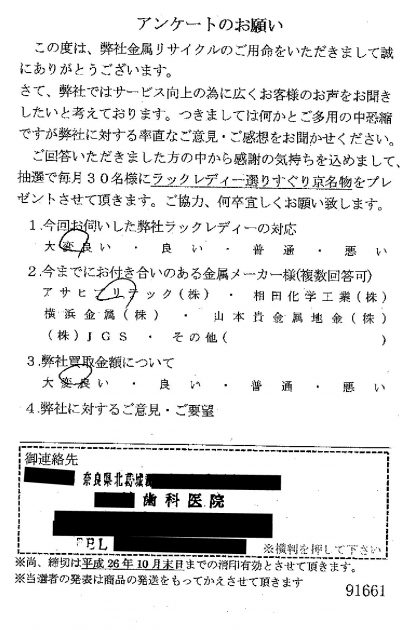 アンケートのお願い
この度は、弊社金属リサイクルのご用命をいただきまして誠
にありがとうございます。
さて、弊社ではサービス向上の為に広くお客様のお声をお聞き
したいと考えております。つきましては何かとご多用の中恐縮
ですが弊社に対する率直なご意見・ご感想をお聞かせください。
ご回答いただきました方の中から感謝の気持ちを込めまして、
抽選で毎月30名様にラックレディー選りすぐり京名物をプレ
ゼントさせて頂きます。ご協力、何卒宜しくお願い致します。
1.今回お伺いした弊社ラックレディーの対応
大変良い・良い・普通・悪い
2.今までにお付き合いのある金属メーカー様(複数回答可)
アサヒプリテック(株)・相田化学工業(株)
横浜金属(株)・山本貴金属地金(株)
(株)JGS・その他( )
3.弊社買取金額について
大変良い・良い・普通・悪い
4.弊社に対するご意見・ご要望
御連絡先
奈良県北葛城
歯科医院
TEL
※横判を押して下さい
※尚、締切は平成26年10月末日までの消印有効とさせて頂きます。
※当選者の発表は商品の発送をもってかえさせて頂きます
91661